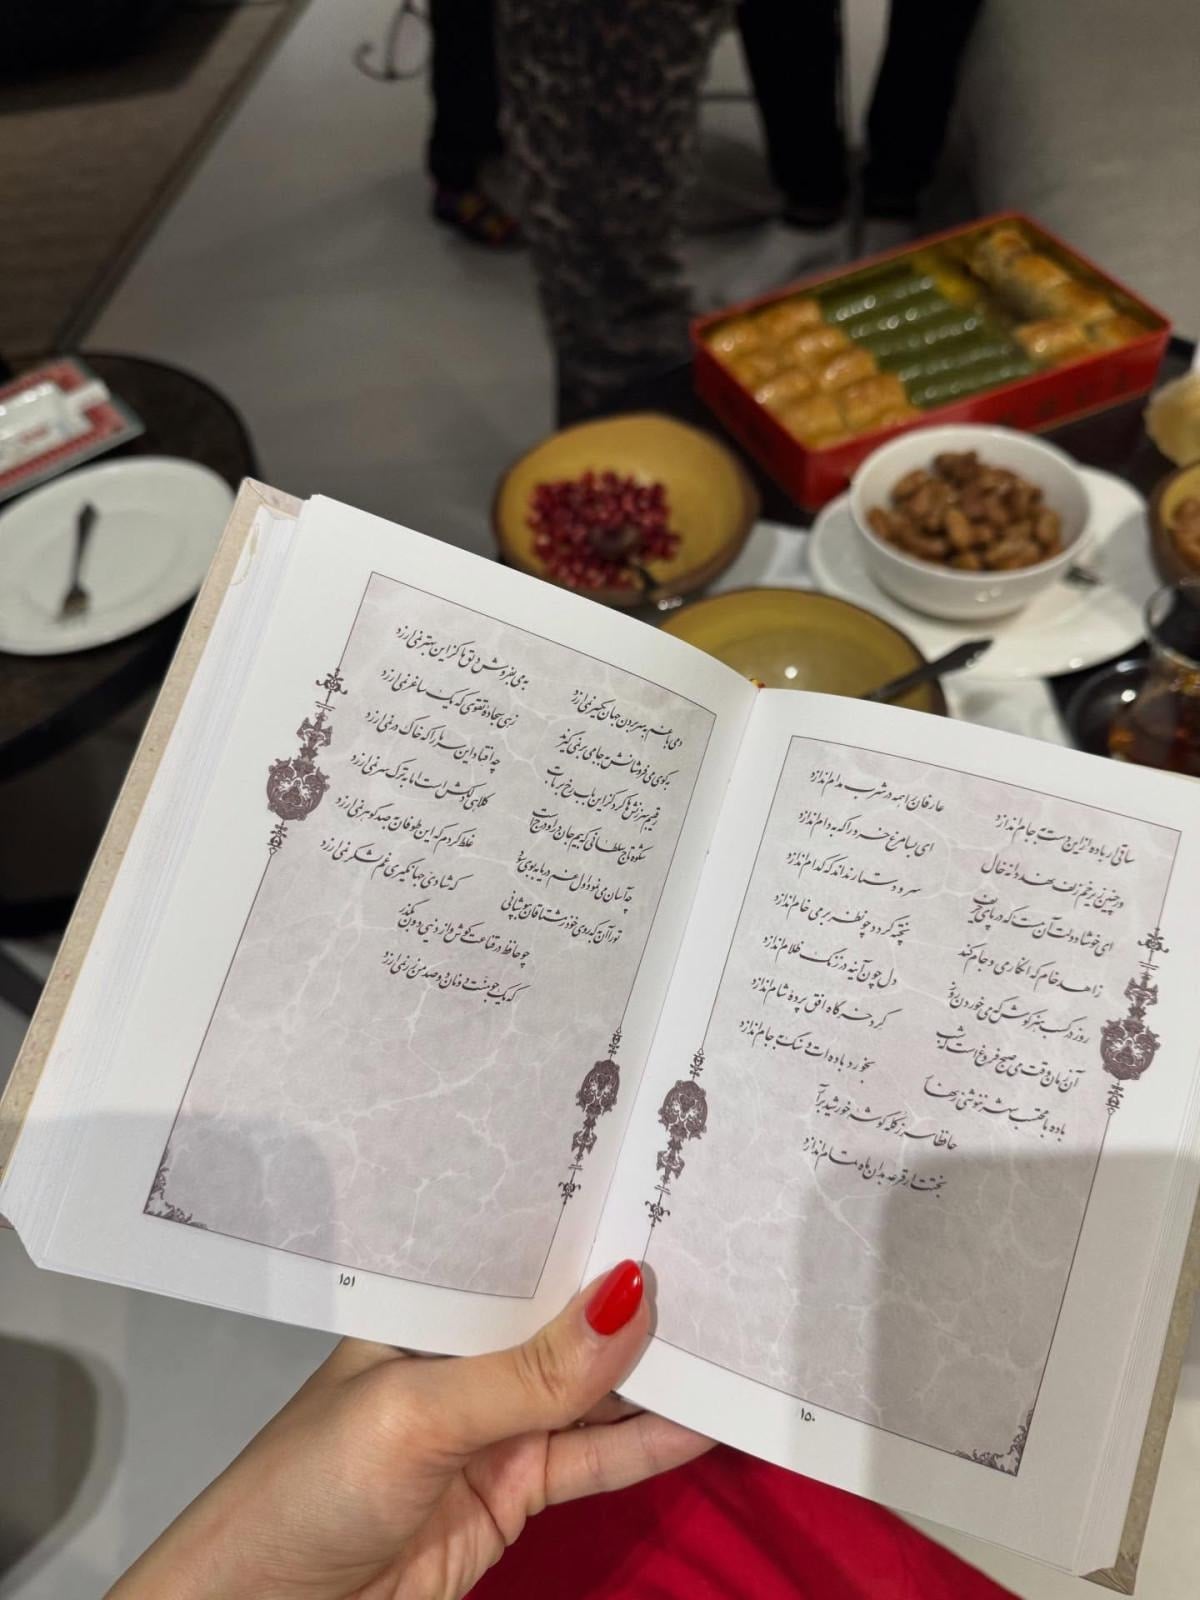 ساقی ار باده ازاین دست به جام اندازد عارفان را همه در شرب مدام اندازد
ور چنین زیر خم زلف نهد دانه خال ای بسا مرغ خرد را که به دام اندازد
ای خوشا دولت آن مست که در پای حریف سر و دستار نداند که کدام اندازد
زاهد خام که انکار می و جام کند پخته گردد چو نظر بر می خام اندازد
روز در کسب هنر کوش که می خوردن روز دل چون آینه در زنگ ظلام اندازد
آن زمان وقت می صبح فروغ است که شب گرد خرگاه افق پردهٔ شام اندازد
باده با محتسب شهر ننوشی زنهار بخورد باده ات و سنگ به جام اندازد
حافظا سر ز کُله گوشهٔ خورشید برآر
بختت ار قرعه بدان ماه تمام اندازد
۱۵۰
دمی با غم به سر بردن جهان یکسر نمی ارزد به می بفروش دلق ما کز این بهتر نمی ارزد
به کوی می فروشانش به جامی بر نمی گیرند زهی سجاده تقوی که یک ساغر نمی ارزد
رقیبم سرزنش ها کرد کز این باب رخ برتاب چه افتاد این سر ما را که خاک در نمی ارزد
شکوه تاج سلطانی که بیم جان در او درج است کلاهی دلکش است اما به ترک سر نمی ارزد
چه آسان می نمود اول غم دریا به بوی سود غلط کردم که این طوفان به صد گوهر نمی ارزد
تو را آن به که روی خود ز مشتاقان بپوشانی که شادی جهانگیری غم لشکر نمی ارزد
چو حافظ در قناعت کوش و از دنیی دون بگذر
که یک جو منت دونان دو صد من زر نمی ارزد
۱۵۱